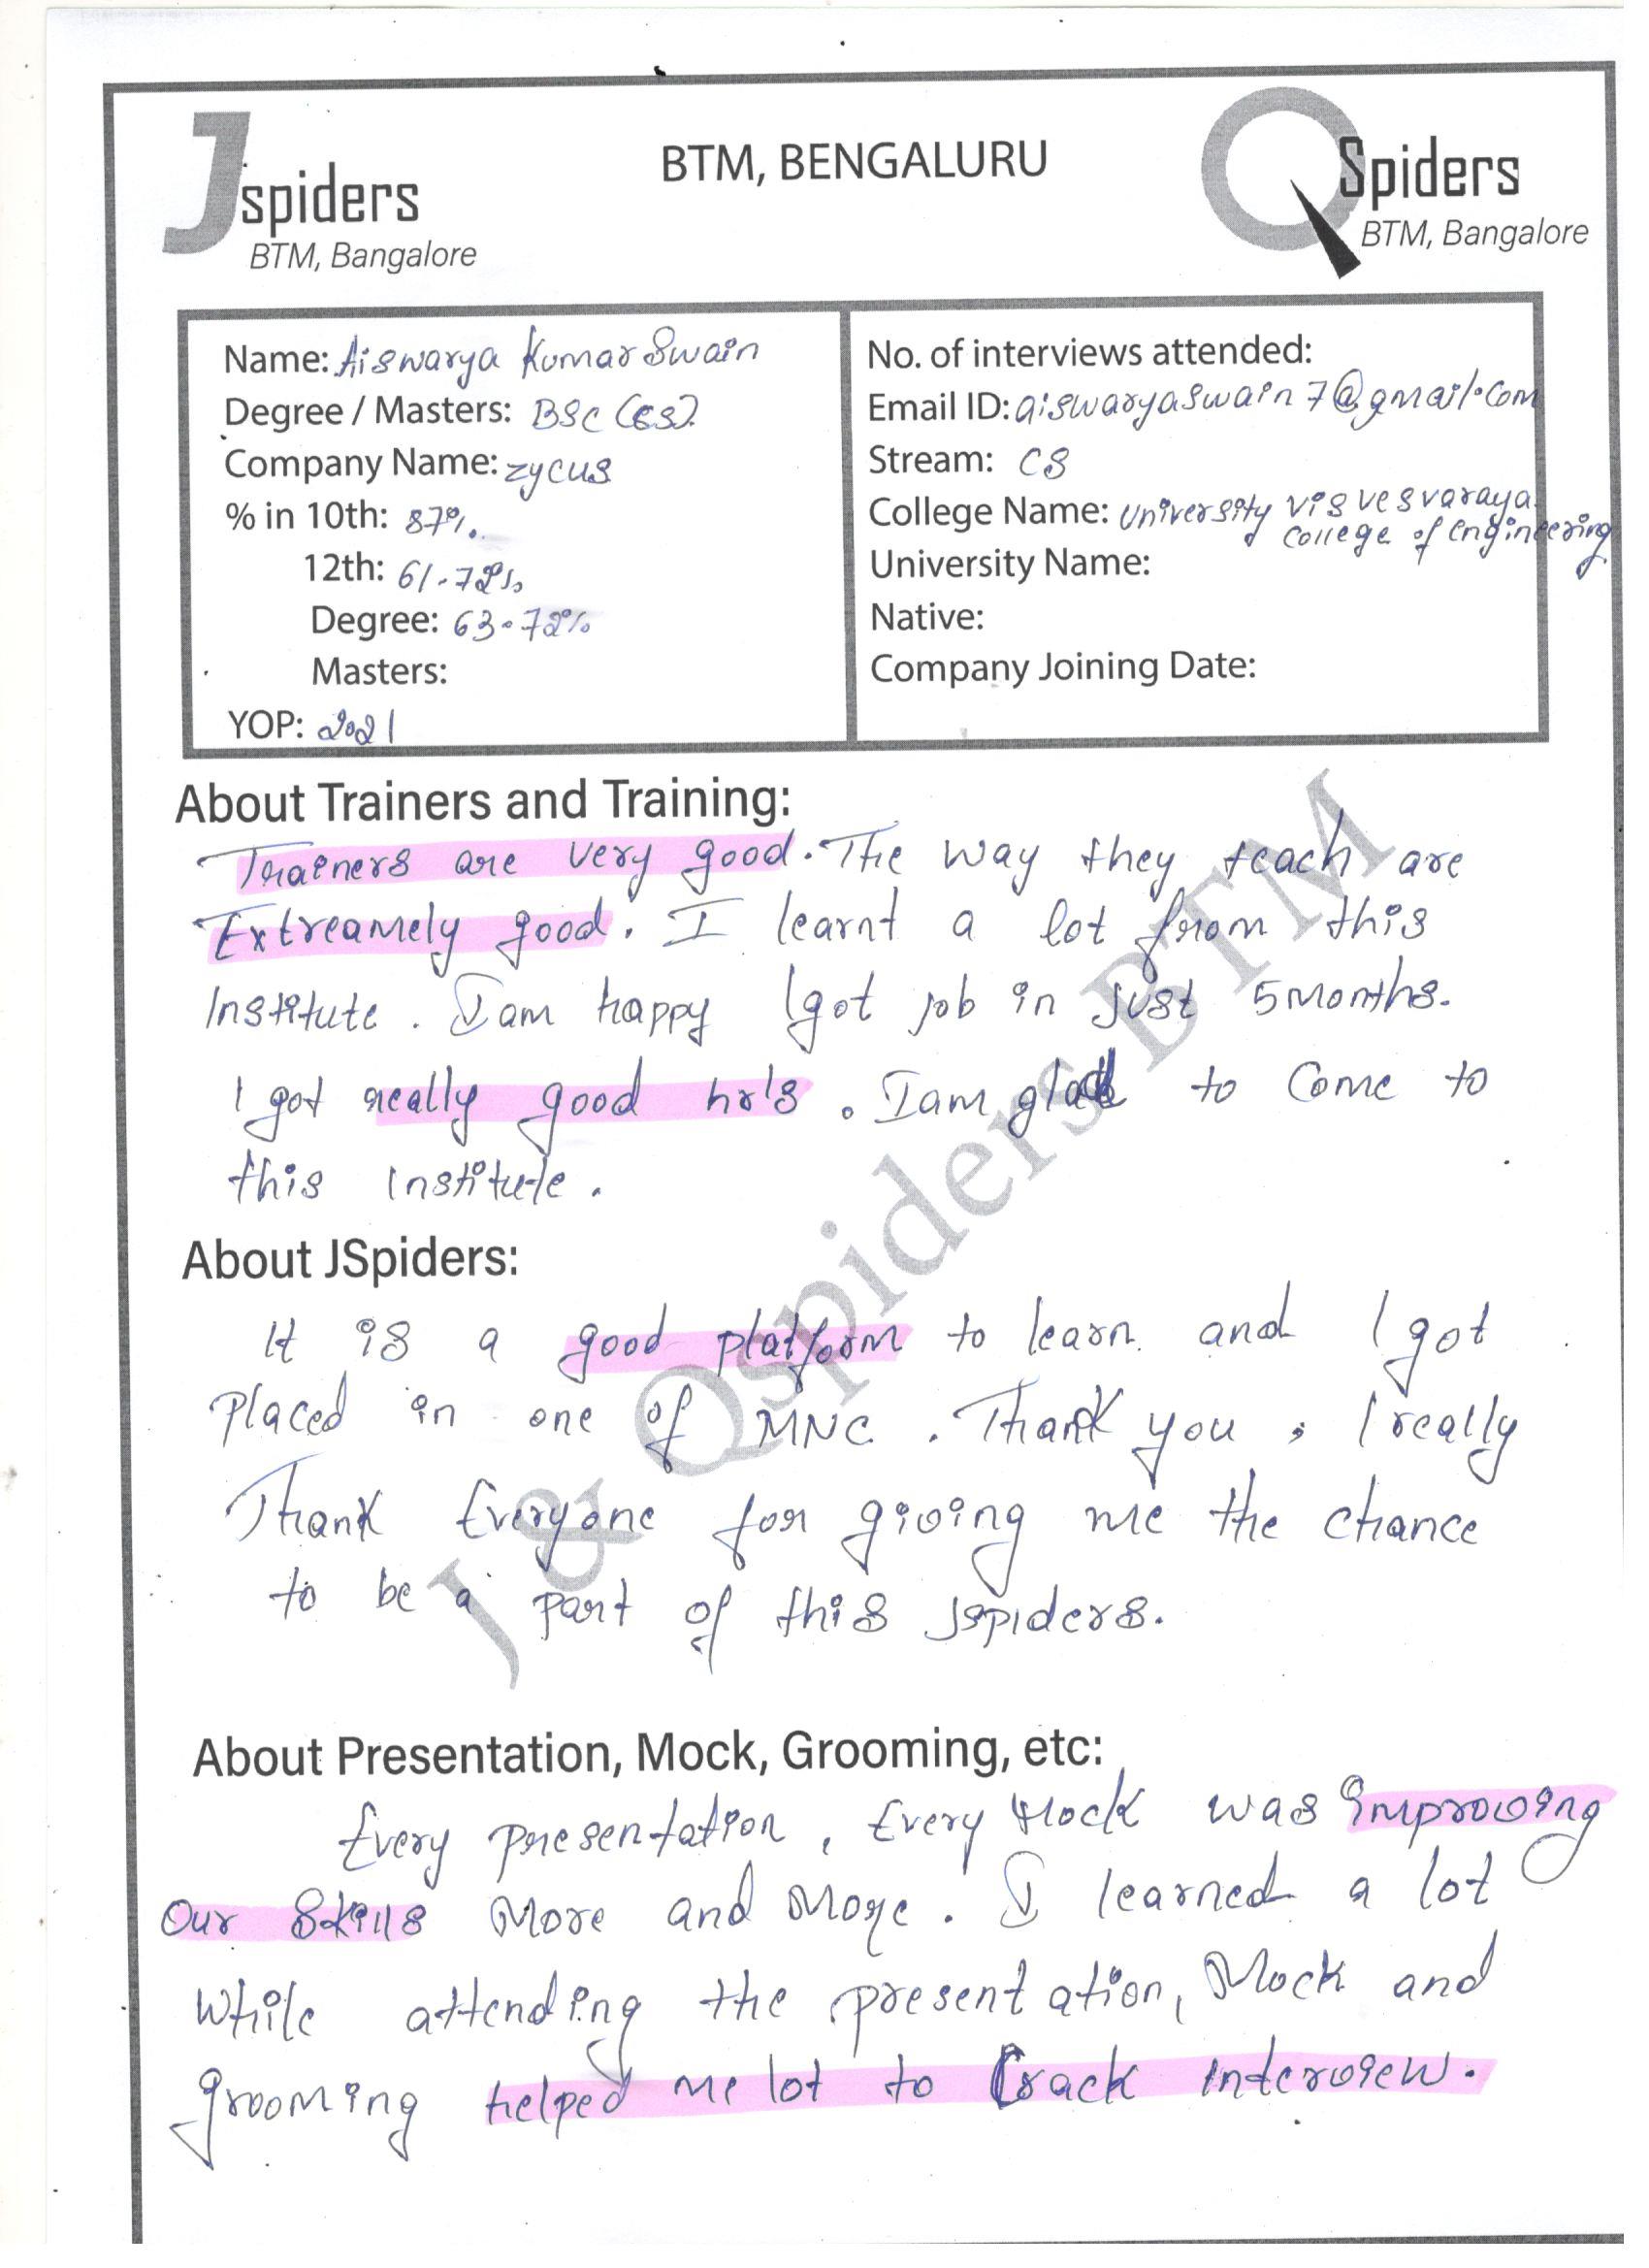 Jspiders
BTM, Bangalore
BTM, BENGALURU
QSpiders
BTM, Bangalore
Name: Aiswarya Kumar Swain
Degree / Masters: BSC (CS).
Company Name: zycus
% in 10th: 87%.
12th: 61.72%
Degree: 63.72%
Masters:
YOP: 2021
No. of interviews attended:
Email ID: aiswaryaswain7@gmail.com
Stream: CS
College Name: University Visvesvaraya
College of Engineering
University Name:
Native:
Company Joining Date:
About Trainers and Training:
Trainers are very good. The way they teach are
Extreamely good. I learnt a lot from this
Institute. I am happy I got job in just 5 months.
I got really good hr's. I am glad to come to
this institute.
About JSpiders:
It is a good platform to learn and I got
placed in one of MNC. Thank you, I really
Thank Everyone for giving me the chance
to be a part of this Jspiders.
About Presentation, Mock, Grooming, etc:
Every presentation, Every Mock was improving
Our Skills More and More. I learned a lot
While attending the presentation, Mock and
grooming helped me lot to Crack interview.
J & Qspiders BTM